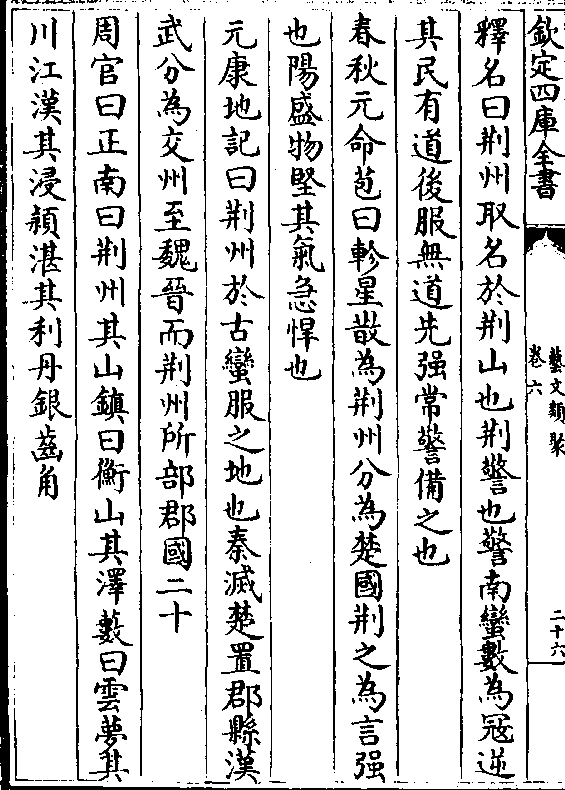 欽定四庫全書
藝文類聚
卷六
二十六
釋名曰荆州取名於荆山也荆警也警南蠻數為冦逆
其民有道後服無道先强常警備之也
春秋元命苞曰軫星散為荆州分為楚國荆之為言强
也陽盛物堅其氣急悍也
元康地記曰荆州於古蠻服之地也秦滅楚置郡縣漢
武分為交州至魏晉而荆州所部郡國二十
周官曰正南曰荆州其山鎮曰衡山其澤藪曰雲夢其
川江漢其浸潁湛其利丹銀齒角